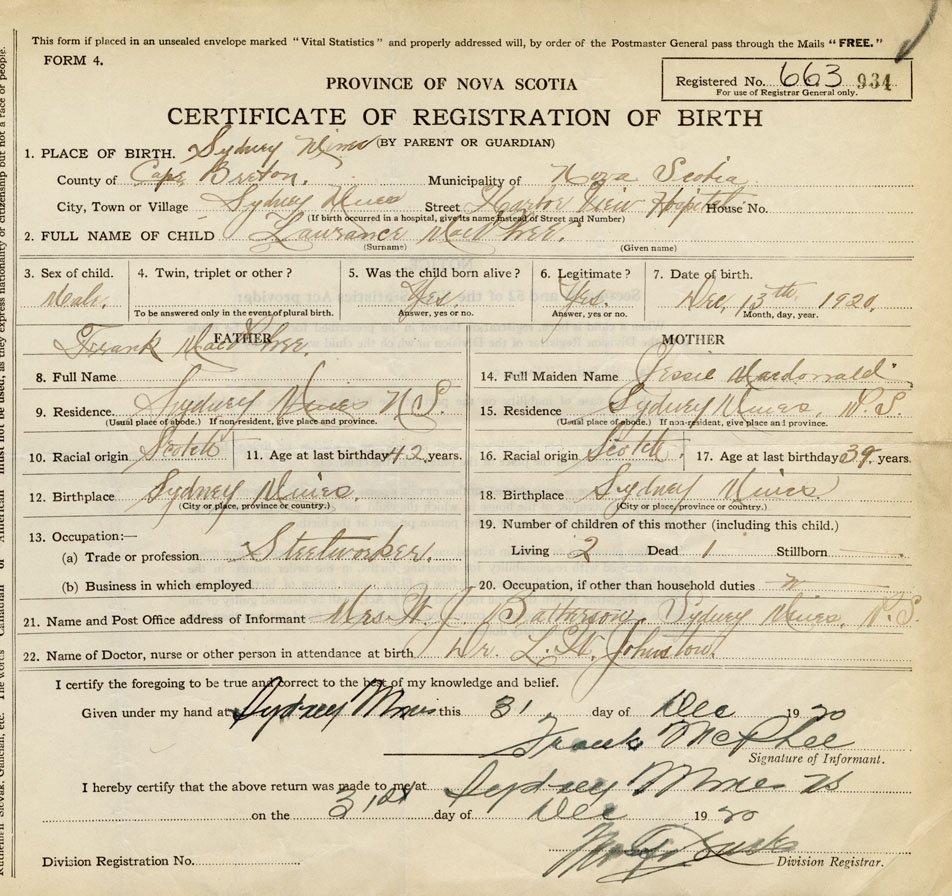 This form if placed in an unsealed envelope marked "Vital Statistics" and properly addressed will, by order of the Postmaster General pass through the Mails "FREE."
FORM 4.
Registered No. 663 934
For use of Registrar General only.
PROVINCE OF NOVA SCOTIA
CERTIFICATE OF REGISTRATION OF BIRTH
(BY PARENT OR GUARDIAN)
1. PLACE OF BIRTH. Sydney Mines
County of Cape Breton. Municipality of Nova Scotia
City, Town or Village Sydney Mines Street Harbor View Hospital House No.
(If birth occurred in a hospital, give its name instead of Street and Number)
2. FULL NAME OF CHILD Lawrance MacPhee.
(Surname) (Given name)
3. Sex of child. 4. Twin, triplet or other? 5. Was the child born alive? 6. Legitimate? 7. Date of birth.
Male. Yes Yes. Dec, 13th 1920.
To be answered only in the event of plural birth. Answer, yes or no. Answer, yes or no. Month, day, year.
FATHER MOTHER
Frank MacPhee.
8. Full Name 14. Full Maiden Name Jessie Macdonald
9. Residence. Sydney Mines N.S. 15. Residence Sydney Mines, N.S.
(Usual place of abode.) If non-resident, give place and province. (Usual place of abode.) If non-resident, give place and province.
10. Racial origin Scotch 11. Age at last birthday 42 years. 16. Racial origin Scotch. 17. Age at last birthday 39. years.
12. Birthplace Sydney Mines. 18. Birthplace Sydney Mines
(City or place, province or country.) (City or place, province or country.)
13. Occupation:— 19. Number of children of this mother (including this child.)
(a) Trade or profession Steelworker. Living 2 Dead 1 Stillborn
(b) Business in which employed 20. Occupation, if other than household duties
21. Name and Post Office address of Informant Mrs. W. J. Batherson, Sydney Mines, N.S.
22. Name of Doctor, nurse or other person in attendance at birth Dr. L. W. Johnston.
I certify the foregoing to be true and correct to the best of my knowledge and belief.
Given under my hand at Sydney Mines this 31 day of Dec 1920
Frank McPhee
Signature of Informant.
I hereby certify that the above return was made to me/at Sydney Mines NS
on the 31st day of Dec 1920
Division Registration No. Division Registrar.